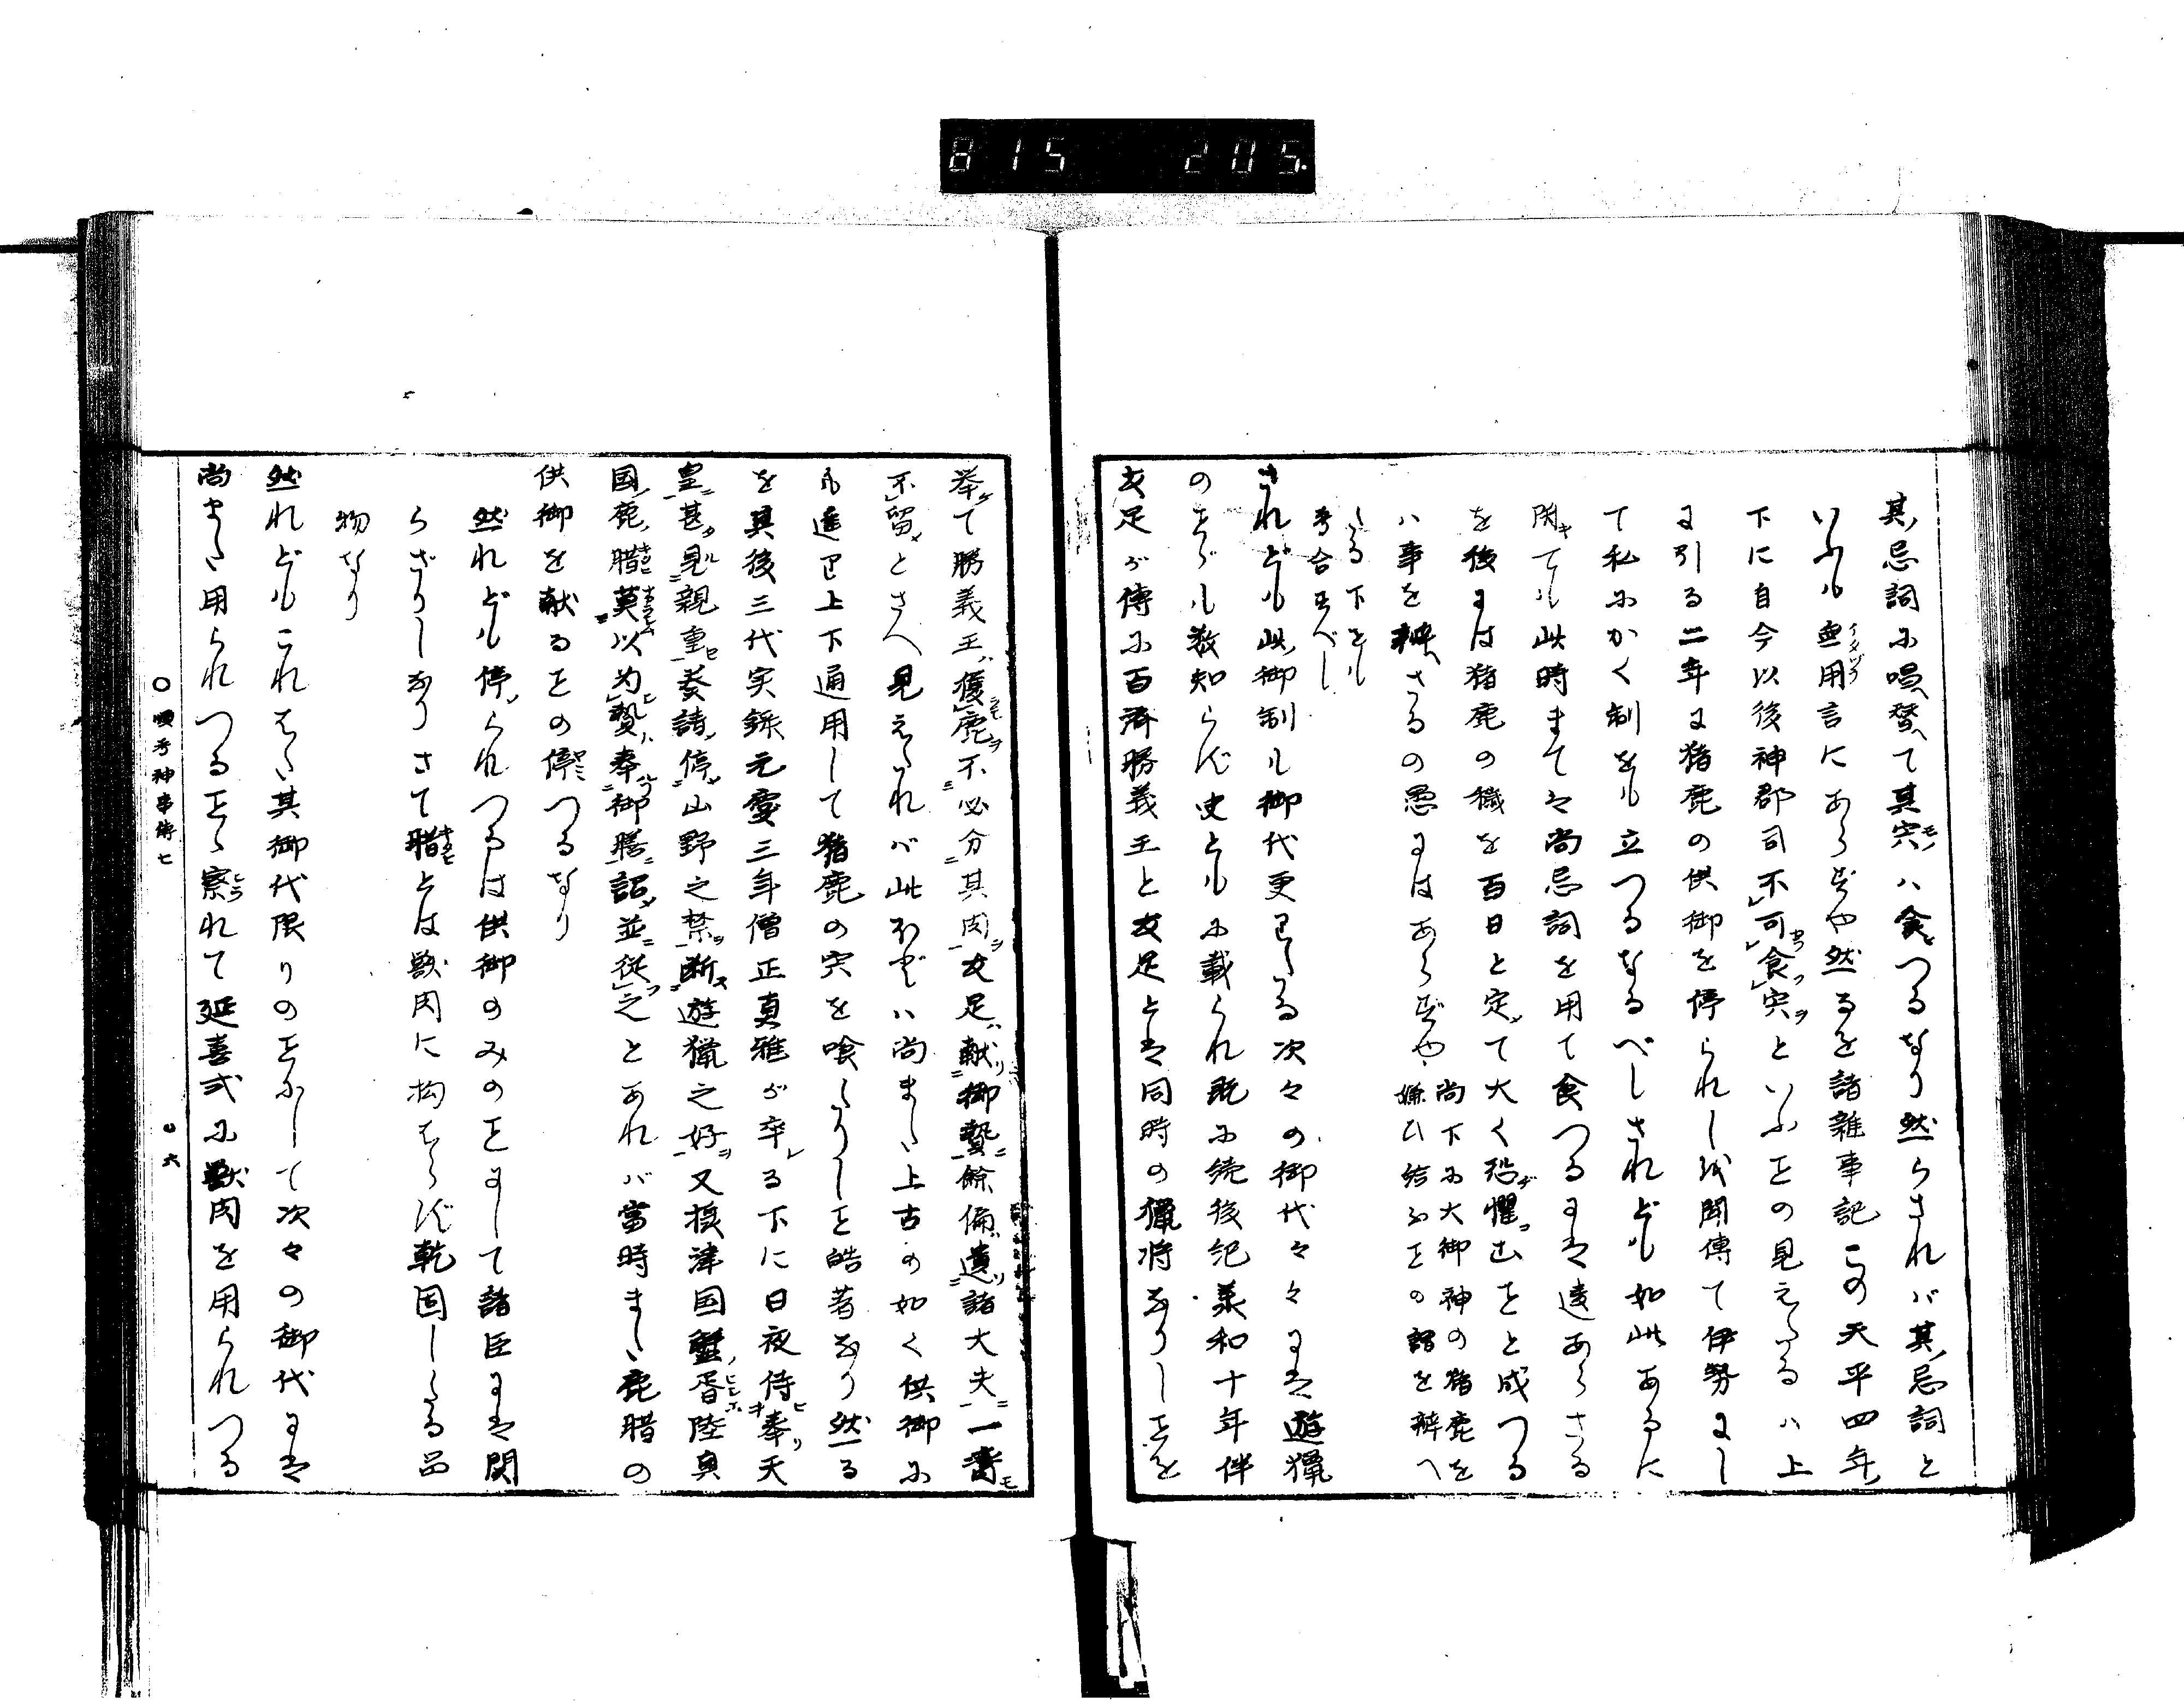 815 205.
其忌詞に唱替て其宍ハ食つるなり然らされバ其忌詞と
いふも無用言にあらずや然るを諸雑事記この天平四年
下に自今以後神郡司不可食宍といふことの見えたるハ上
に引る二年に猪鹿の供御を停られし後聞傳て伊勢にし
て私にかく制をも立つるなるべしされども如此あるに
開ても此時まてハ尚忌詞を用て食つるには違あらさる
を後には猪鹿の穢を百日と定て大く恐懼ることと成つる
ハ事を辨へさるの愚にはあらずや
尚下に大御神の猪鹿を
嫌ひ給ふことの謂を辨へ
たる下をも
考合すべし
されども此御制も御代更りたる次々の御代々々には遊獵
のすぢも数知らず史ともに載られ既に続後紀承和十年伴
友足が傳に百済勝義王と友足とは同時の獵将なりしことを
挙て勝義王獲鹿不必分其肉友足献御贄餘徧遺諸大夫一臠
不留とさへ見えたれバ此ほどハ尚また上古の如く供御に
も進り上下通用して猪鹿の宍を喰たりしこと皓著なり然る
を其後三代実録元慶三年僧正真雅が卒る下に日夜侍奉天
皇甚見親重奏請停山野之禁断遊獵之好又摂津国蟹胥陸奥
国鹿腊莫以為贄奉御膳詔並従之とあれバ當時まて鹿腊の
供御を献ることの停つるなり
然れども停られつるは供御のみのことにして諸臣には関
らざりしなりさて腊とは獣肉に拘はらず乾固したる品
物なり
然れどもこれはた其御代限りのことにして次々の御代には
尚また用られつること察れて延喜式に獣肉を用られつる
〇順考神事傳七
〇六